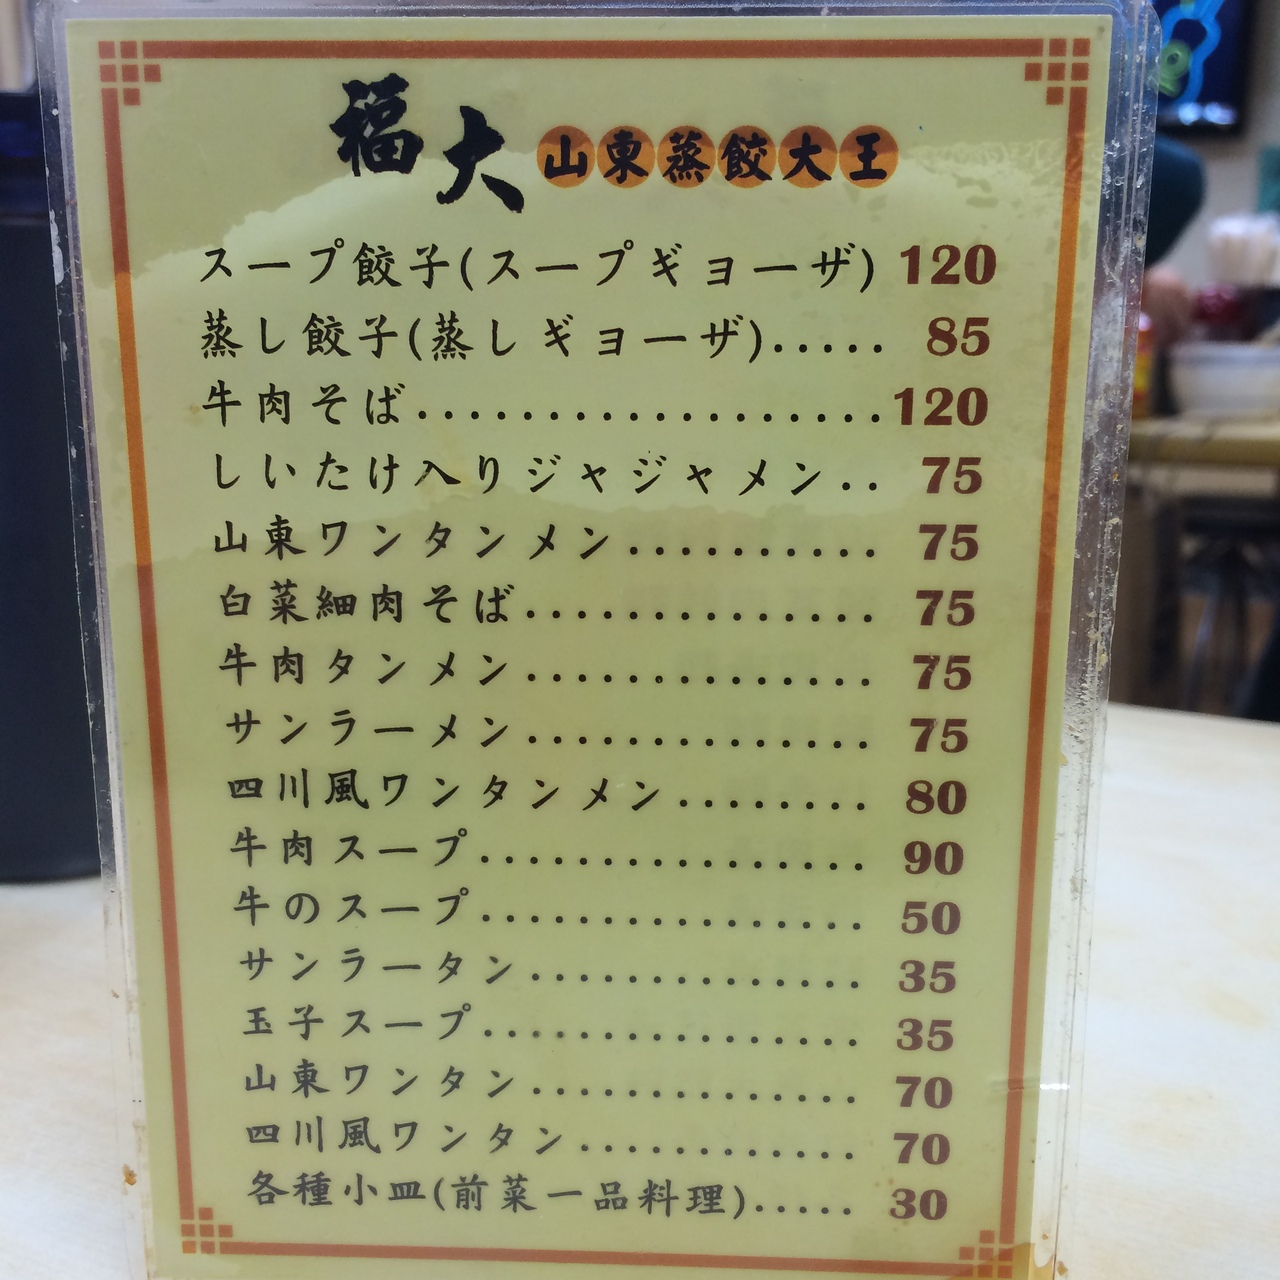 福大 山東蒸餃大王
スープ餃子(スープギョーザ) 120
蒸し餃子(蒸しギョーザ)..... 85
牛肉そば...................120
しいたけ入りジャジャメン.. 75
山東ワンタンメン.......... 75
白菜細肉そば.............. 75
牛肉タンメン.............. 75
サンラーメン.............. 75
四川風ワンタンメン........ 80
牛肉スープ................ 90
牛のスープ................ 50
サンラータン.............. 35
玉子スープ................ 35
山東ワンタン.............. 70
四川風ワンタン............ 70
各種小皿(前菜一品料理)..... 30